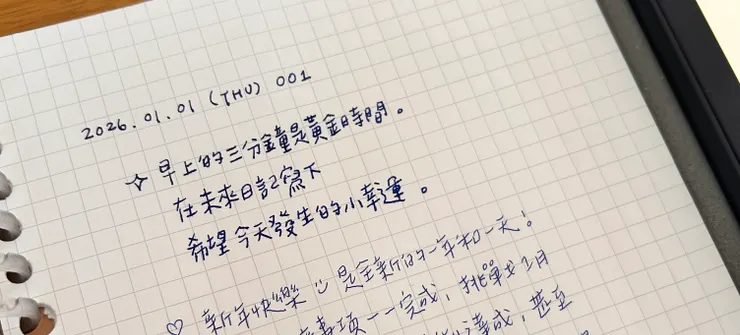 2026.01.01 (THU) 001
☆ 早上的三分鐘是黃金時間。
在未來日記寫下
希望今天發生的小幸運。
♡ 新年快樂 是全新的一年和一天!
事項一一完成,挑戰1月
達成,甚至